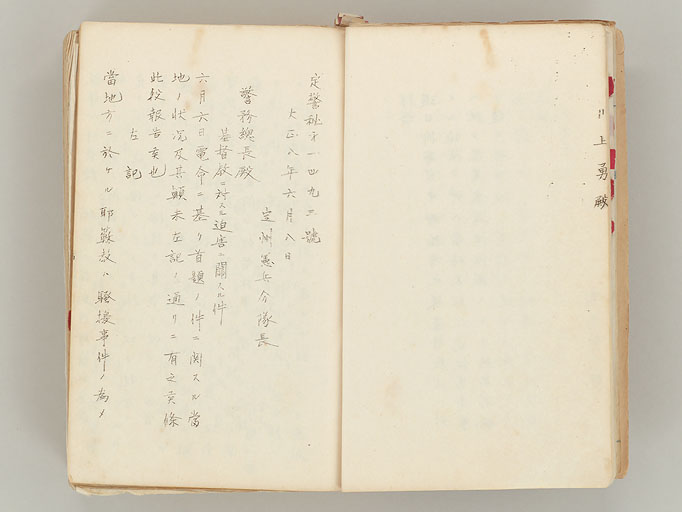 川上勇殿
定警秘第一四九三號
大正八年六月八日
定州憲兵分隊長
警務總長殿
基督教ニ対スル迫害ニ關スル件
六月六日電命ニ基リ首題ノ件ニ関スル當
地ノ状況及其顛末左記ノ通リニ有之候條
此段報告候也
左記
當地方ニ於ケル耶蘇教ハ騒擾事件ノ為メ